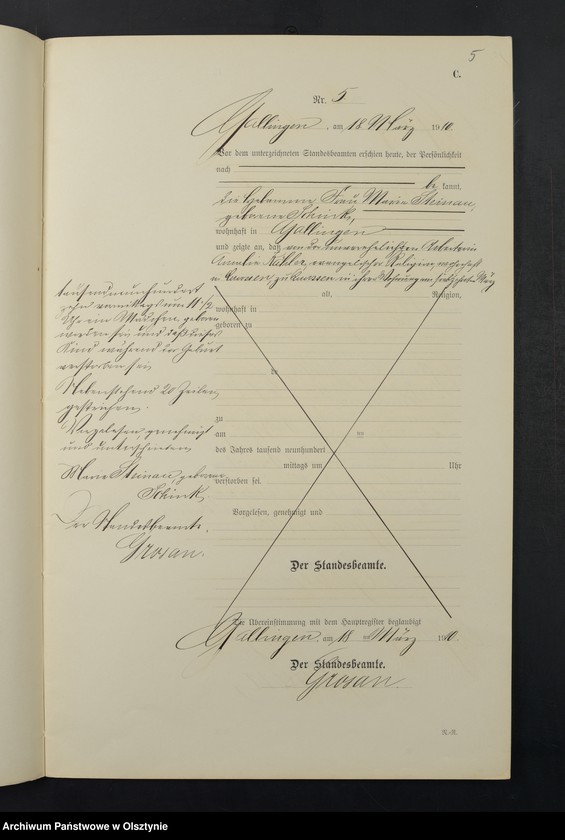 5
C.
Nr. 5
Gallingen, am 18 März 1910.
Vor dem unterzeichneten Standesbeamten erschien heute, der Persönlichkeit
nach
be kannt,
die Hebamme Frau Marie Steinau,
geborene Schink,
wohnhaft in Gallingen
und zeigte an, daß von der unverehelichten Arbeiterin
Amalie Köhler, evangelischer Religion, wohnhaft
in zu in ihrer Wohnung am März
alt, Religion,
tausend neunhundert
zehn vormittags um 11 1/2
Uhr ein Mädchen geboren
worden sei und daß dieses
Kind während der Geburt
verstorben sei
Nebenstehend 20 Zeilen
gestrichen.
Vorgelesen, genehmigt
und unterschrieben
Marie Steinau, geborene
Schink
Der Standesbeamte.
Grosan.
wohnhaft in
geboren zu
de
zu
am
des Jahres tausend neunhundert
mittags um Uhr
verstorben sei.
Vorgelesen, genehmigt und
Der Standesbeamte.
Die Übereinstimmung mit dem Hauptregister beglaubigt
Gallingen, am 18 März 1910.
Der Standesbeamte.
Grosan.
Archiwum Państwowe w Olsztynie